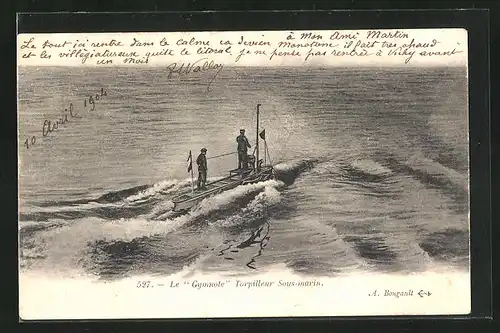 à Mon Ami Martin
Le tout ici rentre dans le calme ca devien Monotone il fait tres chaud
et les villégiateurs quite le litoral je ne pense pas rentré à Vichy avant
un mois
10 Avril 1904
527. — Le "Gymnote" Torpilleur Sous-marin.
A. Bougault